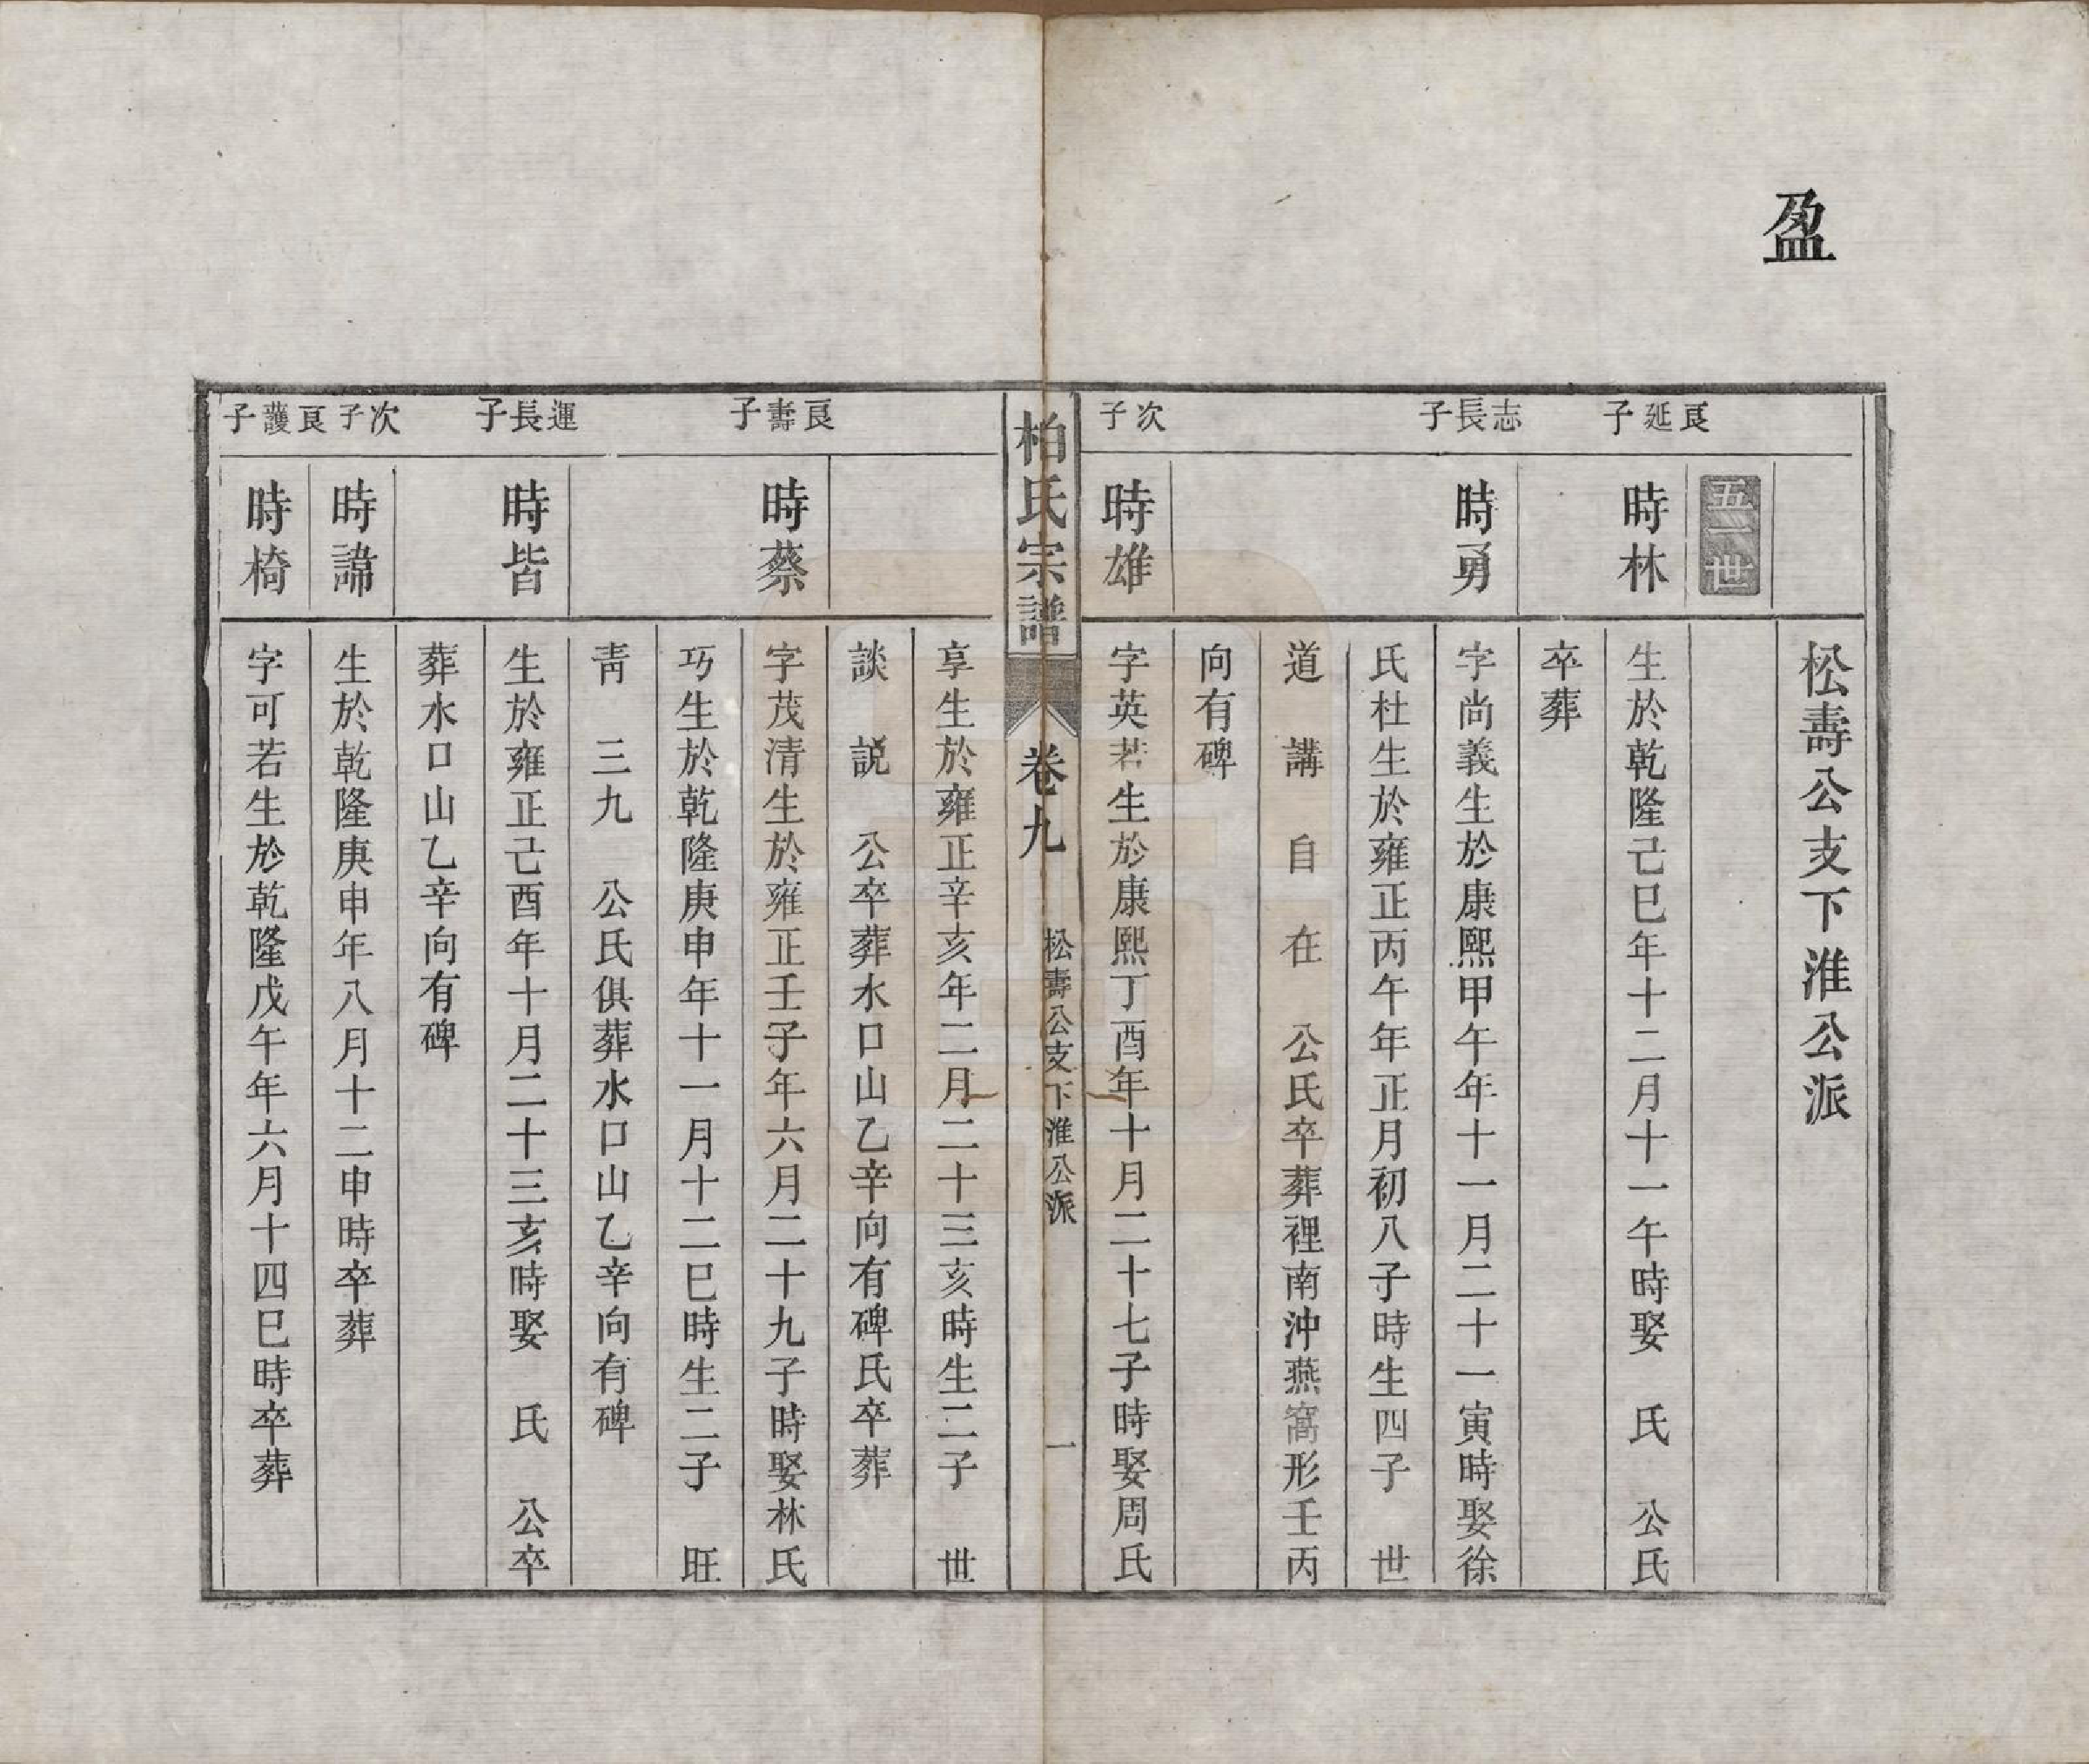 盈
松壽公支下淮公派
五一世
良延子
時林
生於乾隆己巳年十二月十一午時娶　氏　公氏
卒葬
志長子
時勇
字尚義生於康熙甲午年十一月二十一寅時娶徐
氏杜生於雍正丙午年正月初八子時生四子　世
道　講　自　在　公氏卒葬裡南沖燕窩形壬丙
向有碑
次子
時雄
字英若生於康熙丁酉年十月二十七子時娶周氏
柏氏宗譜
卷九
松壽公支下淮公派
一
享生於雍正辛亥年二月二十三亥時生二子　世
談　説　公卒葬水口山乙辛向有碑氏卒葬
良壽子
時蔡
字茂清生於雍正壬子年六月二十九子時娶林氏
巧生於乾隆庚申年十一月十二巳時生二子　旺
靑　三九　公氏俱葬水口山乙辛向有碑
運長子
時皆
生於雍正己酉年十月二十三亥時娶　氏　公卒
葬水口山乙辛向有碑
次子
時諱
生於乾隆庚申年八月十二申時卒葬
良護子
時椅
字可若生於乾隆戊午年六月十四巳時卒葬